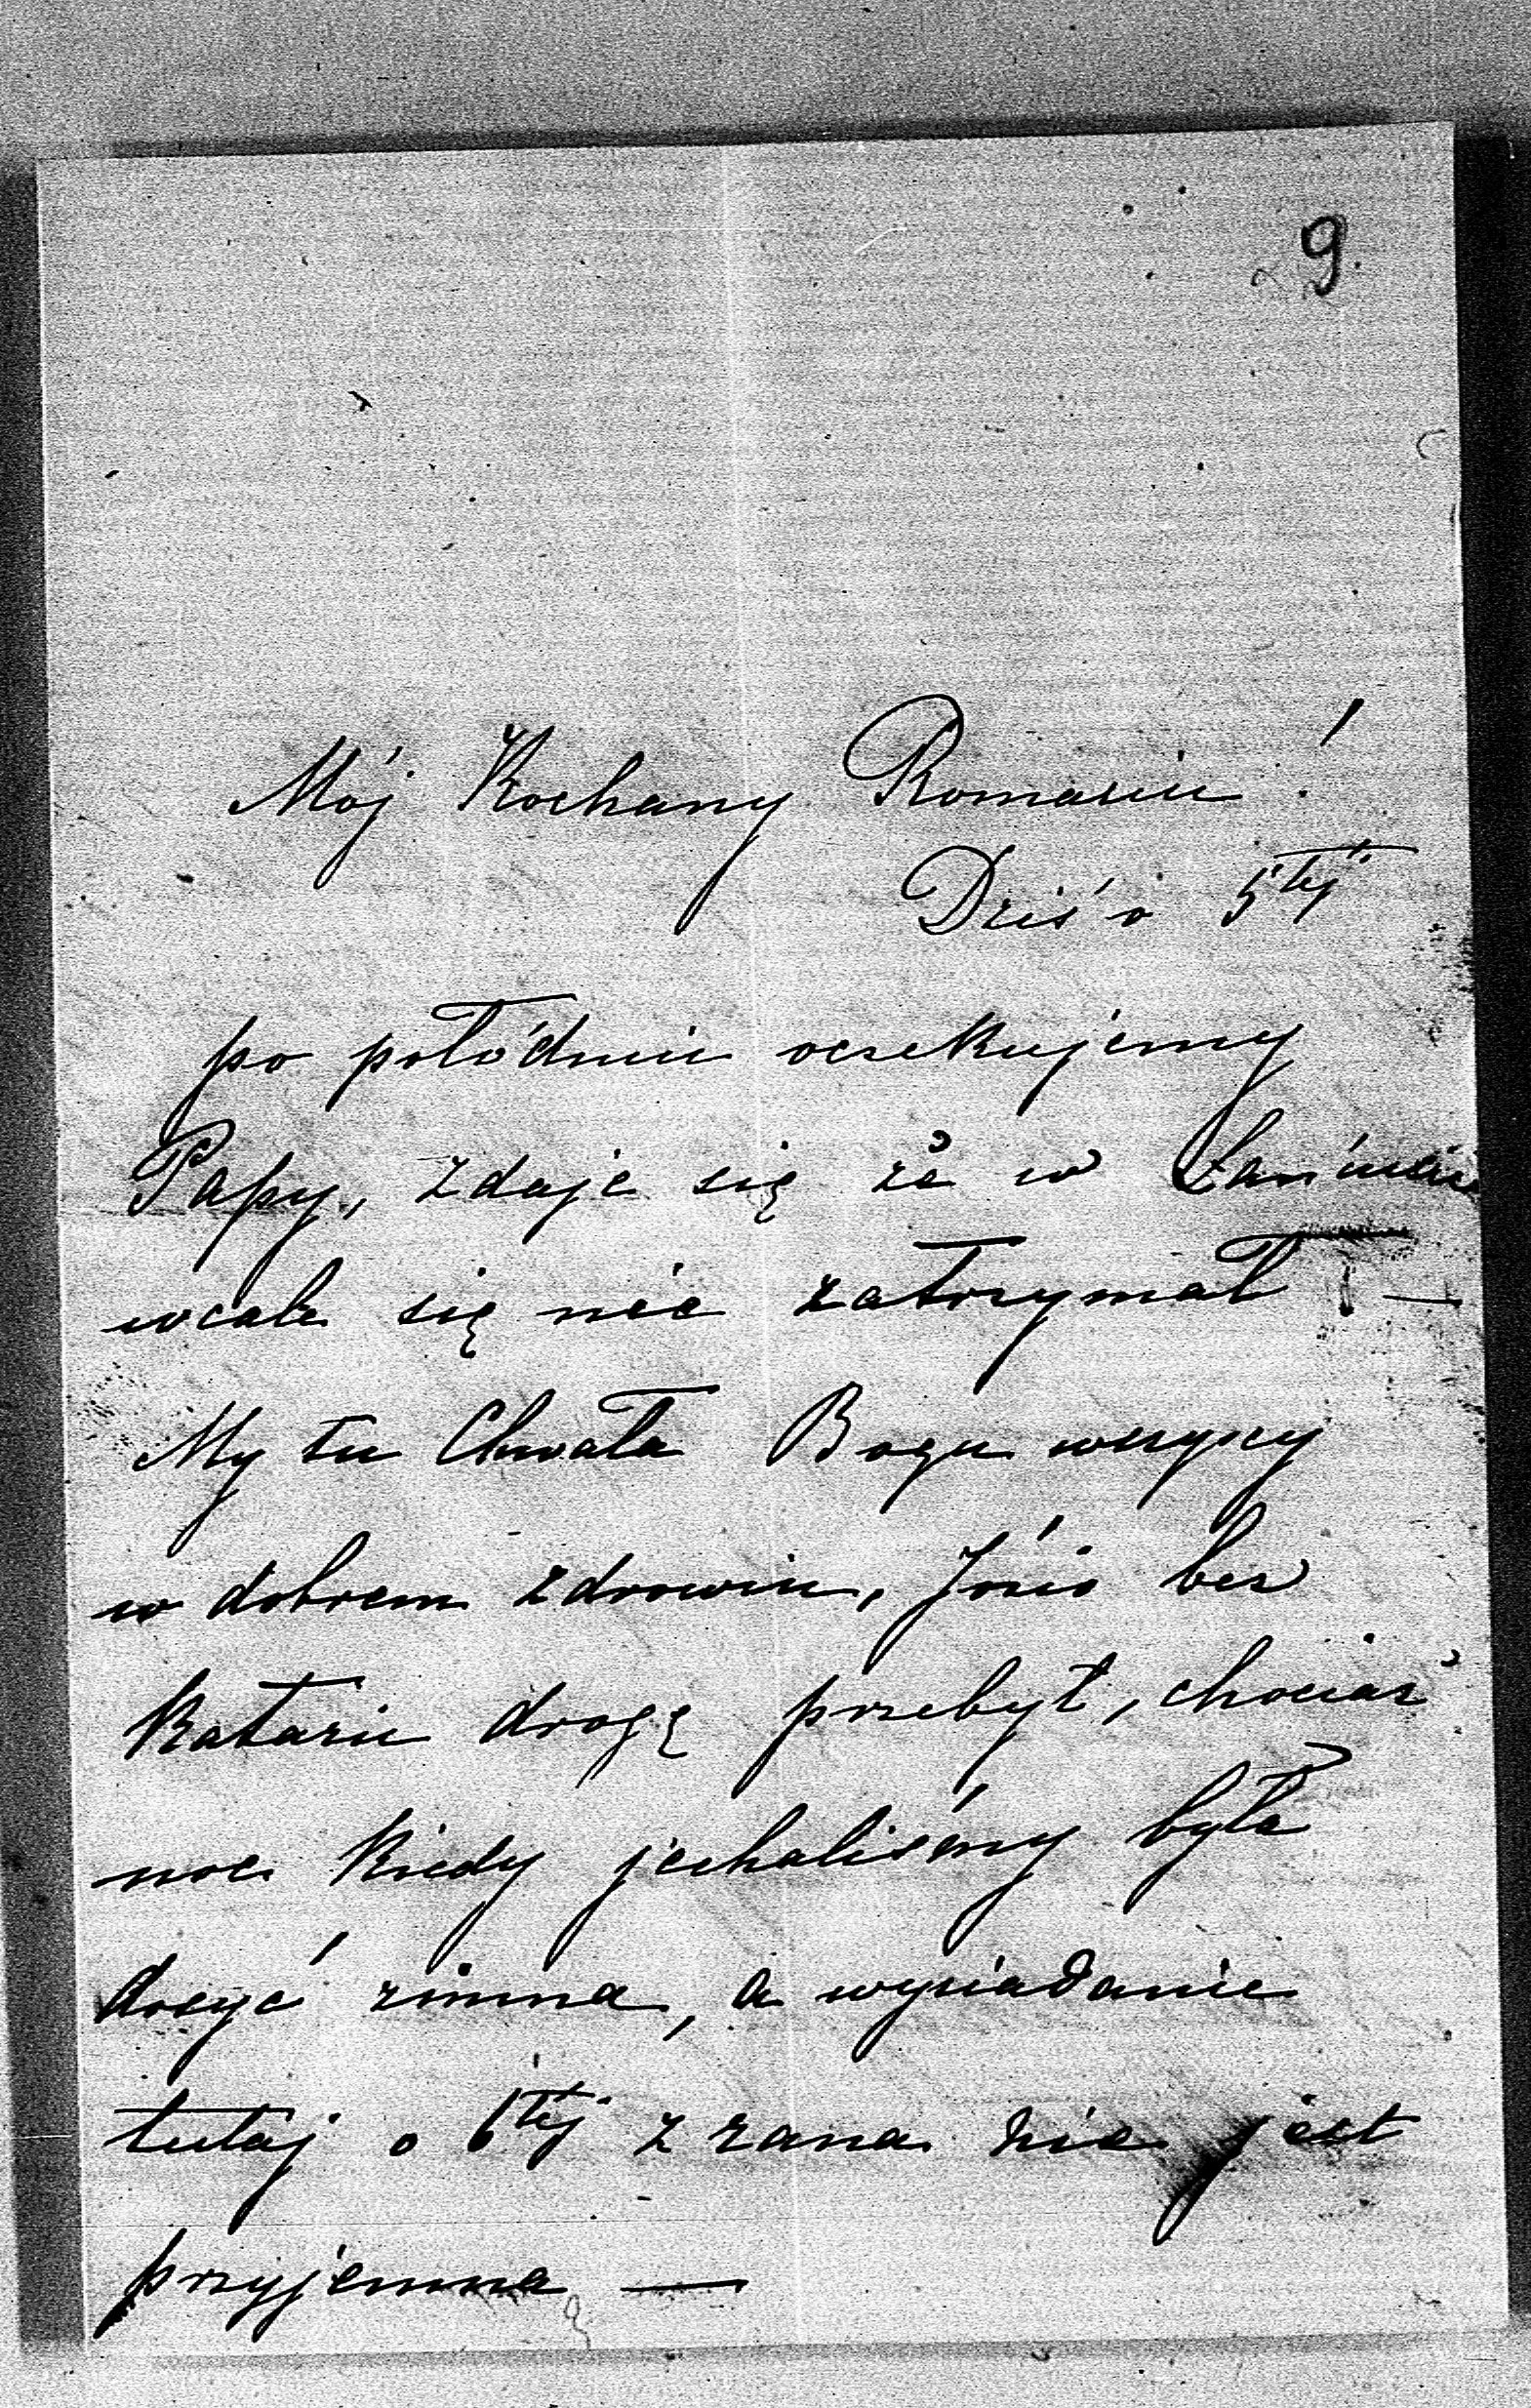 9.
Mój Kochany Romasiu!
Dziś o 5tej
po połódniu oczekujemy
Papy, zdaje się że w Łańcucie
wcale się nie zatrzymał! —
My tu Chwała Bogu wszyscy
w dobrem zdrowiu, Józio bez
Kataru drogę przebył, chociaż
noc kiedy jechaliśmy była
dosyć zimna, a wysiadanie
tutaj o 6tej z rana nie jest
przyjemne —